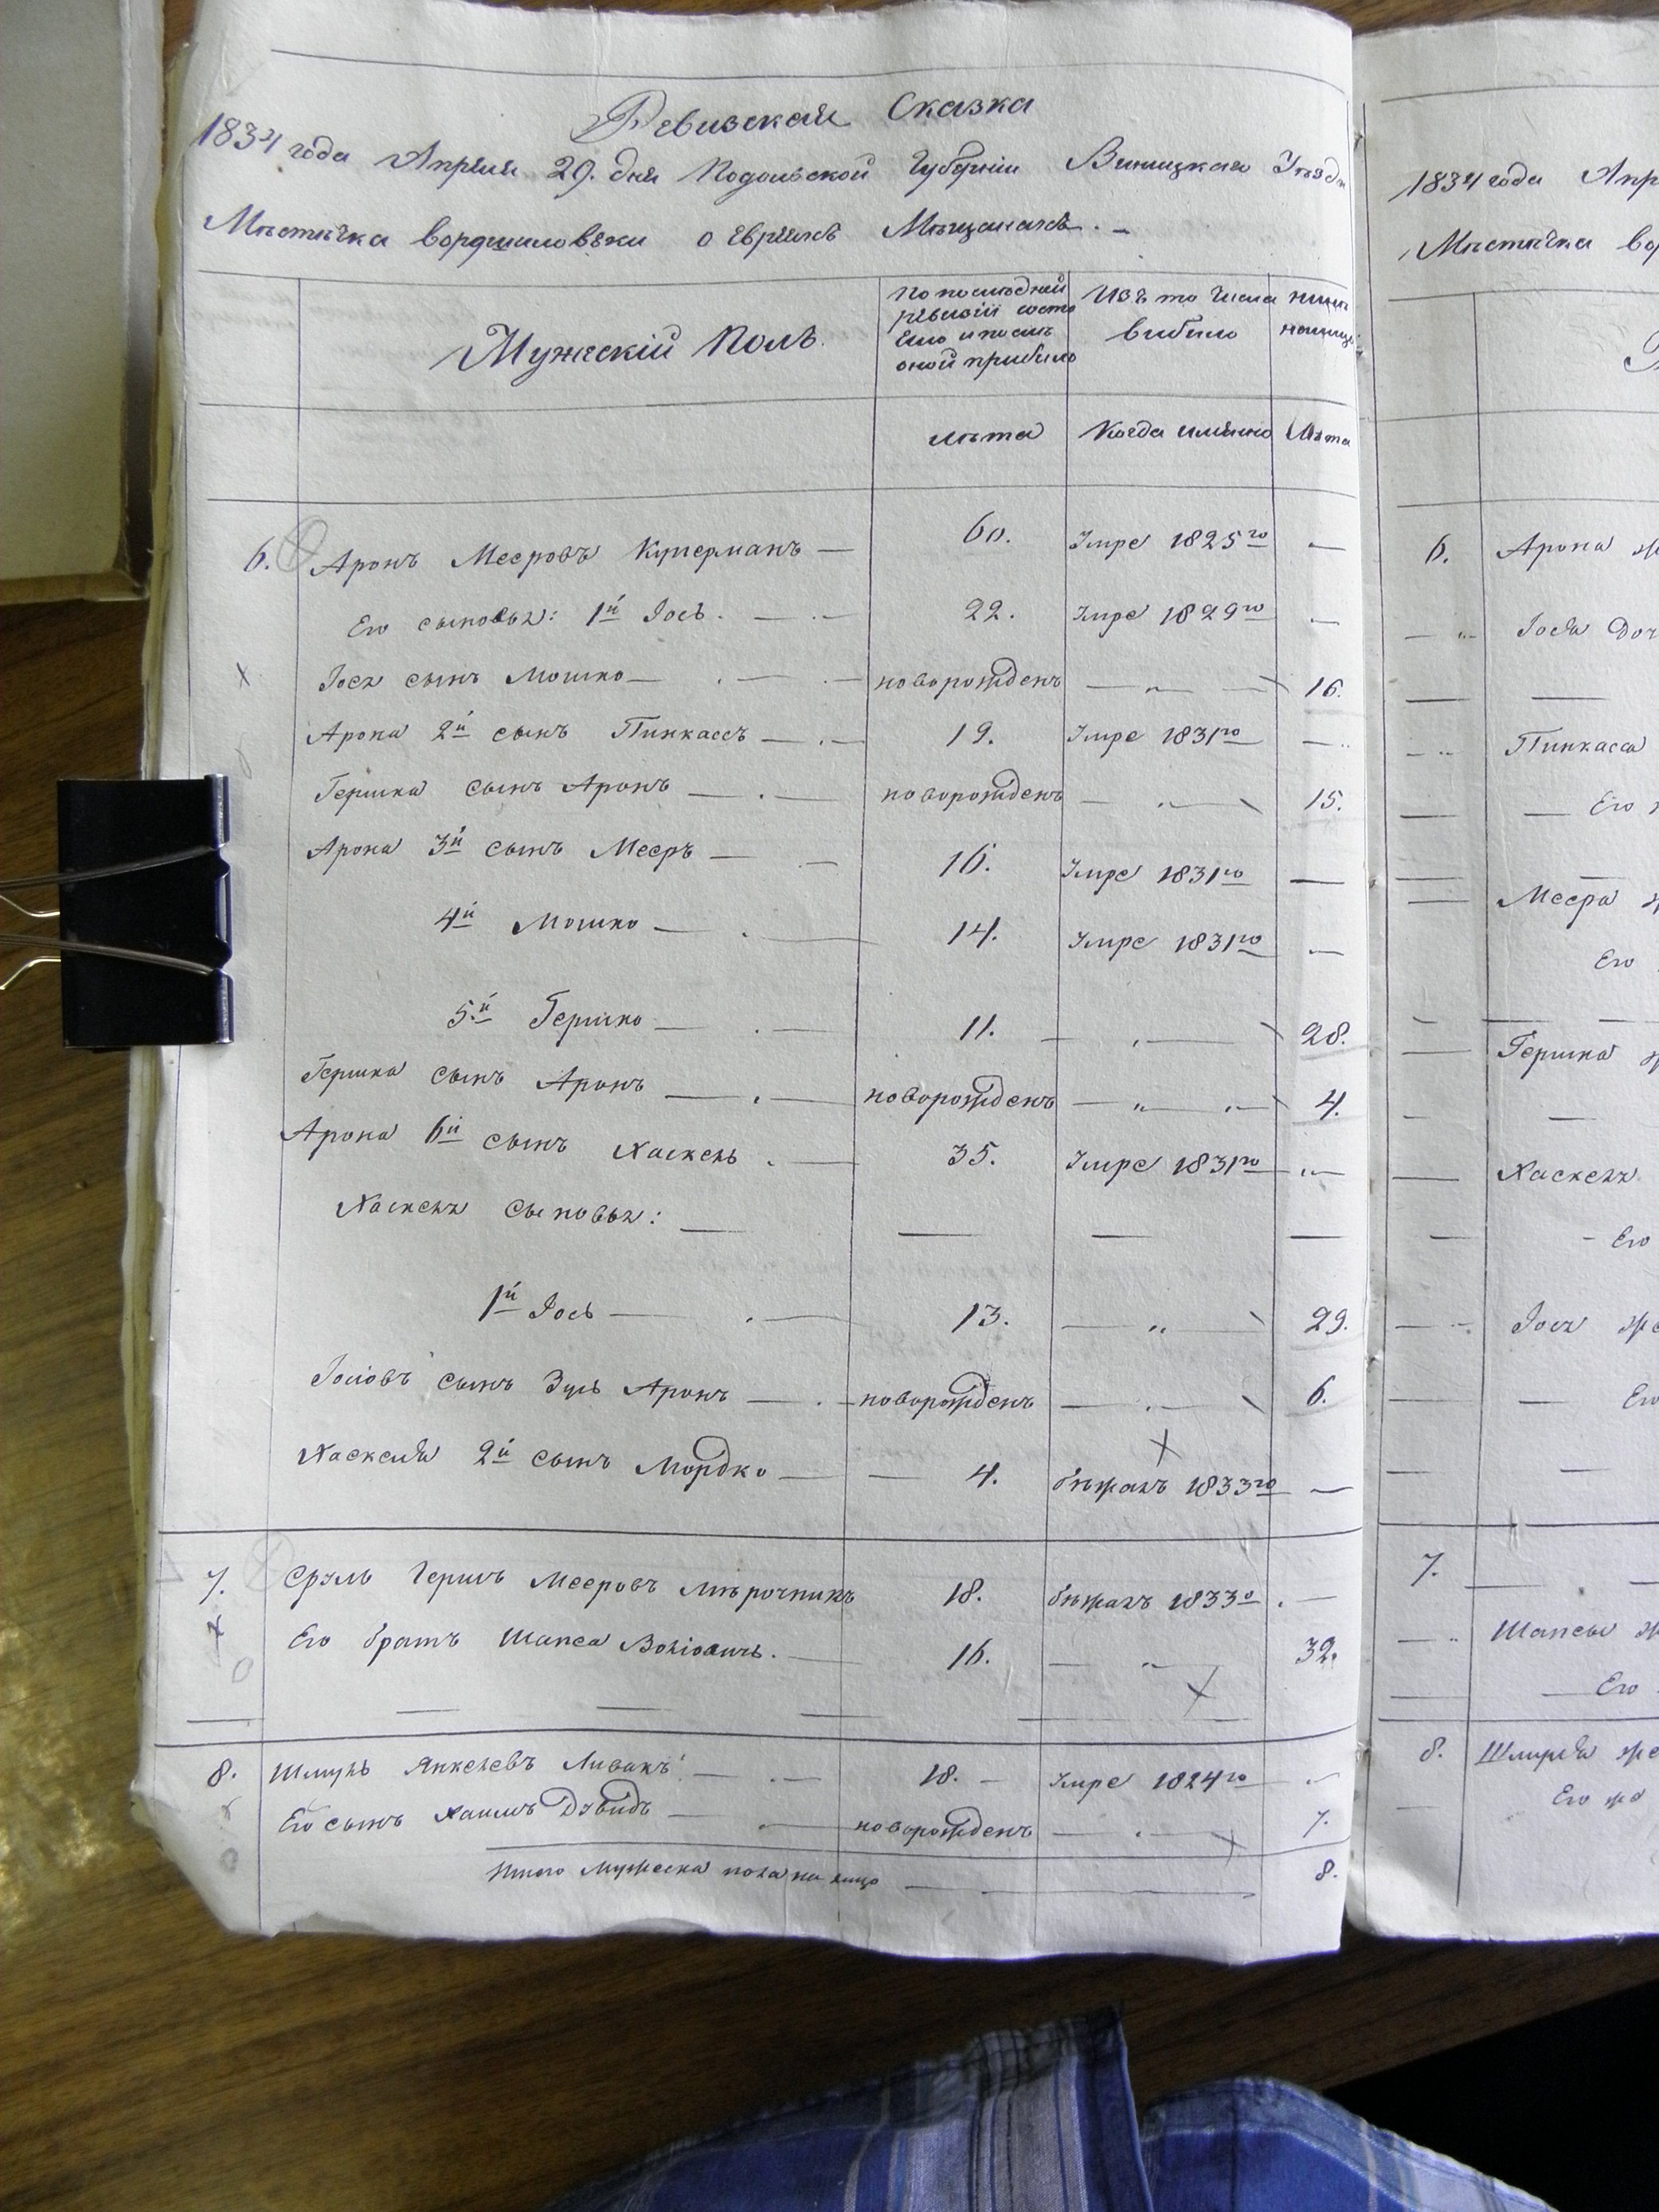 Ревизская Сказка
1834 года Апреля 29. дня Подольской Губерніи Виницкаго Уезда
Мѣстечка Ворошиловки о Евреяхъ Мѣщанахъ. –
Мужескій Полъ.
По последней
ревизіи состо
яло и послѣ
оной прибыло
Изъ то числа
выбыло
ныне
на лицо
лѣта
Когда имянно
Лѣта
6. Аронъ Мееровъ Куперманъ — 60. Умре 1825го —
Его сыновья: 1й Іось. — 22. Умре 1829го —
Іося сынъ Мошко — новорожденъ — 16.
Арона 2й сынъ Пинкассъ — 19. Умре 1831го —
Гершка сынъ Аронъ — новорожденъ — 15.
Арона 3й сынъ Мееръ — 16. Умре 1831го —
4й Мошко — 14. Умре 1831го —
5й Гершко — 11. — 28.
Гершка сынъ Аронъ — новорожденъ — 4.
Арона 6й сынъ Хаскель — 35. Умре 1831го —
Хаскеля сыновья: — — — —
1й Іось — 13. — 29.
Іосіовъ сынъ Зусь Аронъ — новорожденъ — 6.
Хаскеля 2й сынъ Мордко — 4. бѣжалъ 1833го —
7. Сруль Гершъ Мееровъ 18. бѣжалъ 1833го —
Его братъ Шапса 16. — 32.
8. Шмуль Янкелевъ Ливакъ — 18. – Умре 1824го —
Его сынъ Хаимъ Дувидъ — новорожденъ — 7.
Итого Мужеска пола на лицо — 8.
1834 года Апр
Мѣстечка Во
6. Арона ж
Іося Доч
Пинкасса
Его
Меера ж
Его
Гершка ж
Хаскеля
Его
Іося же
Его
7.
Шапсы ж
Его
8. Шмуля же
Его же